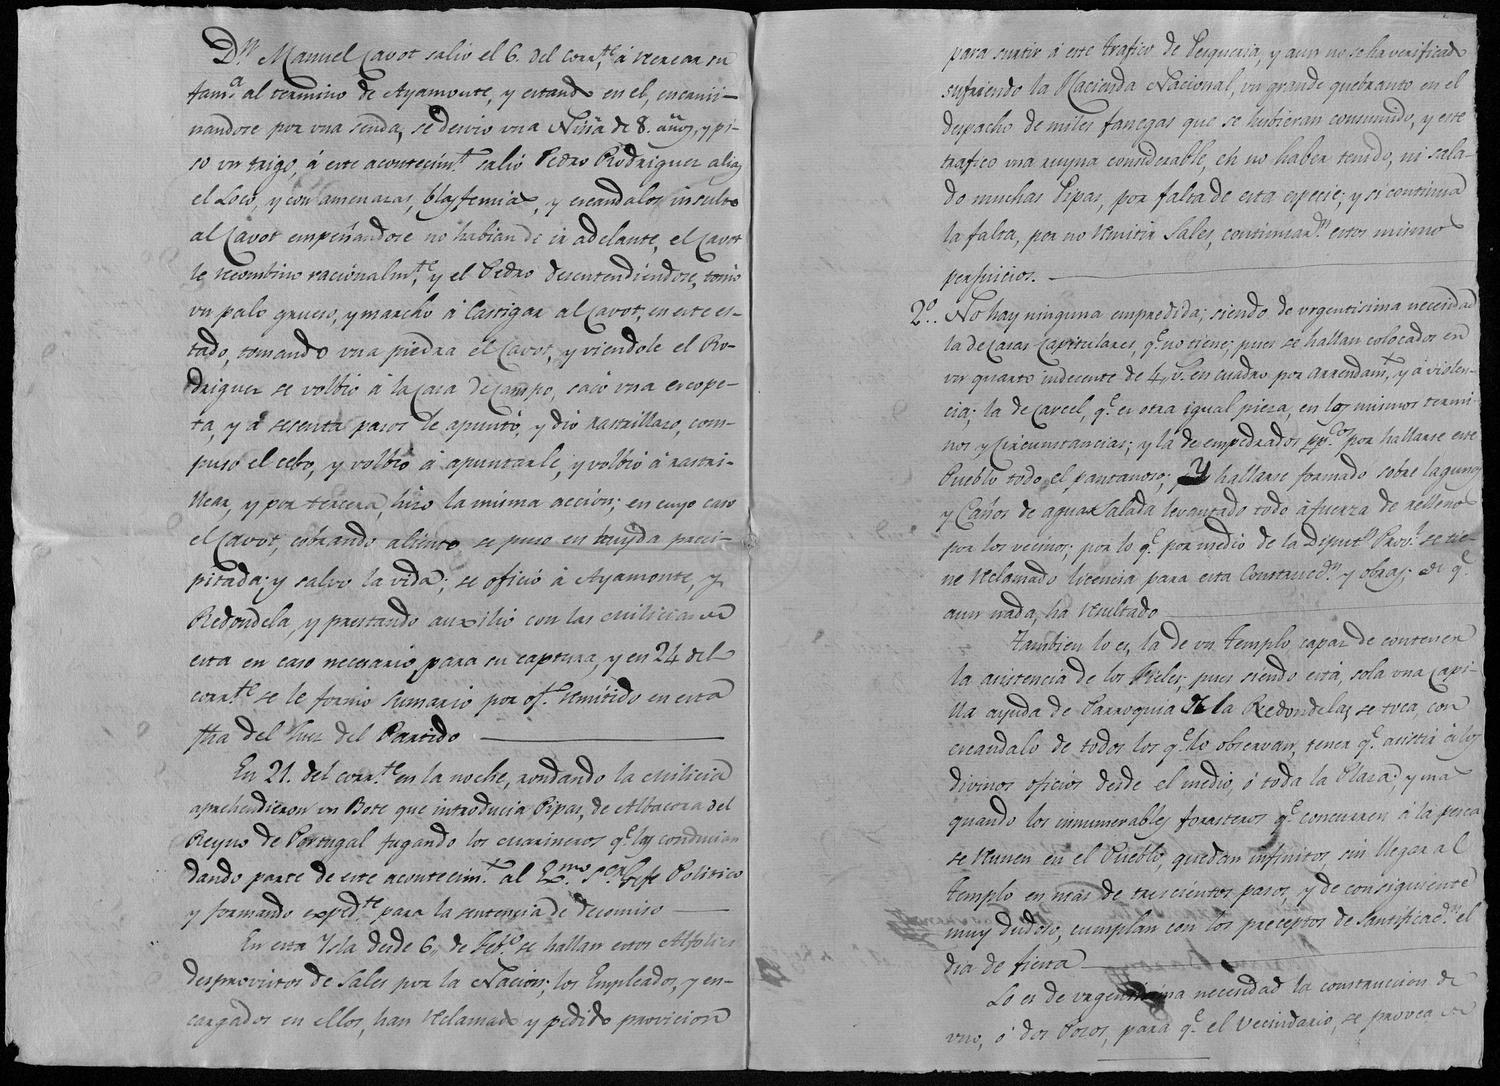 Dn. Manuel Cavot salio el 6. del corrte. á recrear su
fama. al termino de Ayamonte, y estando en el, encami-
nandose por vna senda, se desvio vna Niña de 8. años, y pi-
so vn trigo, á este acontecimto. salió Pedro Rodriguez alias
el Loco, y con amenazas, blasfemias, y escandalos insulto
al Cavot empeñandose no habian de ir adelante, el Cavot
le recombino racionalmte. y el Pedro desentendiendose, tomó
vn palo grueso, y marchó á Castigar al Cavot, en este es-
tado, tomando vna piedra el Cavot, y viendole el Ro-
driguez se volbió á la Casa de Campo, sacó vna escope-
ta, y á sesenta pasos le apuntó, y dió rastrillazo, com-
puso el cebo, y volbió á apuntarle, y volbió á rastri-
llear, y por tercera, hizo la misma acción; en cuyo caso
el Cavot, cobrando aliento se puso en huyda preci-
pitada; y salvó la vida; se ofició á Ayamonte, y
Redondela, y prestando auxilio con las Milicias de
esta en caso necesario para su captura, y en 24 del
corrte. se le formó Sumario por of. remitido en esta
fha del Juez del Partido
En 21. del corrte. en la noche, rondando la Milicia
aprehendieron vn Bote que introducia Pipas, de Albacora del
Reyno de Portugal fugando los marineros qe. las conducian
dando parte de este acontecimto. al Exmo. Sor. Gefe Politico
y formando expedte. para la sentencia de decomiso
En esta Ysla desde 6, de Febo. se hallan estos Alfolies
desprovistos de Sales por la Nacion; los Empleados, y en-
cargados en ellos, han reclamado y pedido provicion
para surtir á este trafico de Pesqueria, y aun no se ha verificado
sufriendo la Hacienda Nacional, vn grande quebranto en el
despacho de miles fanegas que se hubieran consumido, y este
trafico vna ruyna considerable, en no haber tenido, ni sala-
do muchas Pipas, por falta de esta especie; y si continua
la falta, por no remitir Sales, continuarán estos mismos
perjuicios.
2o.. No hay ninguna empredida; siendo de vrgentisima necesidad
la de Casas Capitulares, qe. no tiene; pues se hallan colocados en
vn quarto indecente de 4, v. en cuadro por arrendamto. y á violen-
cia; la de Carcel, qe. es otra igual pieza, en los mismos termi-
nos y circunstancias; y la de empedrados ppcos. por hallarse este
Pueblo todo el pantanoso; y hallarse formado sobre lagunas
y Caños de agua Salada levantado todo á fuerza de relleno
por los vecinos; por lo qe. por medio de la Diputn. Provl. se tie-
ne reclamado licencia para esta Construccn. y obras; de qe.
aun nada, ha resultado
Tambien lo es, la de vn templo capaz de contener
la asistencia de los Fieles; pues siendo esta, sola vna Capi-
lla ayuda de Parroquia de la Redondela, se toca, con
escandalo de todos los qe. lo observan, tener qe. asistir á los
divinos oficios desde el medio, ó toda la Plaza; y mas
quando los innumerables forasteros qe. concurren á la pesca
se reunen en el Pueblo, quedan infinitos sin llegar al
templo en mas de trescientos pasos, y de consiguiente
muy dudoso, cumplan con los preceptos de santificacn. el
dia de fiesta
Lo es de vrgentisima necesidad la construccion de
vno, ó dos Pozos, para qe. el vecindario, se provea de